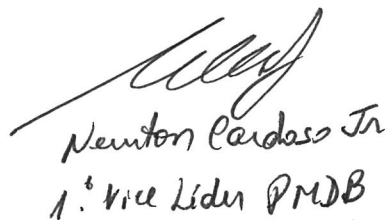 Newton Cardoso Jr
1.º Vice Líder PMDB